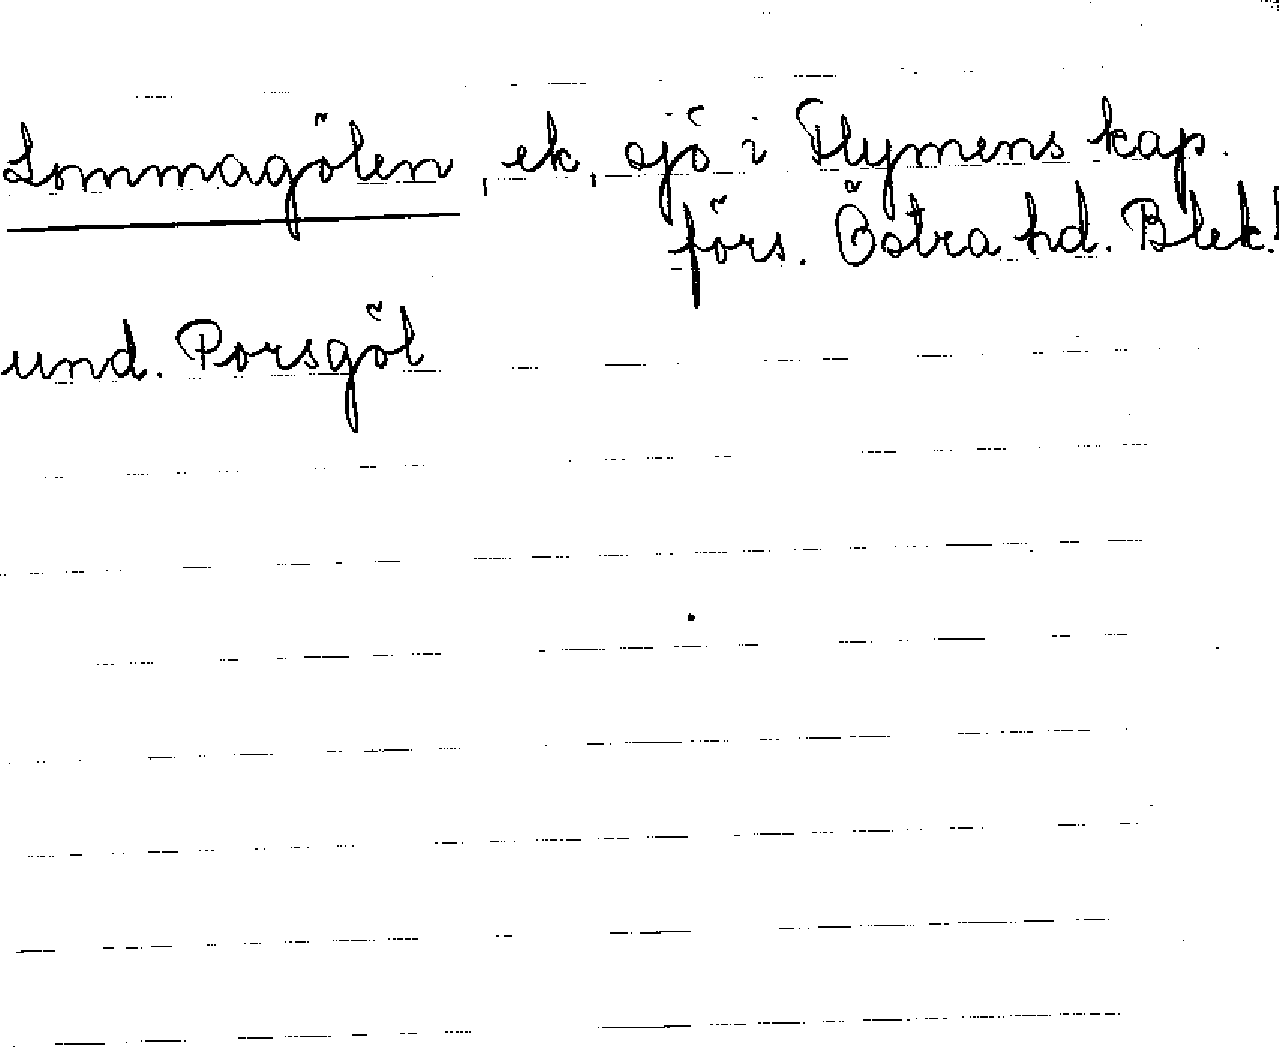 Lommagölen, ek, sjö i Flymens kap.
förs. Östra hd. Blek.
und. Porsgöl